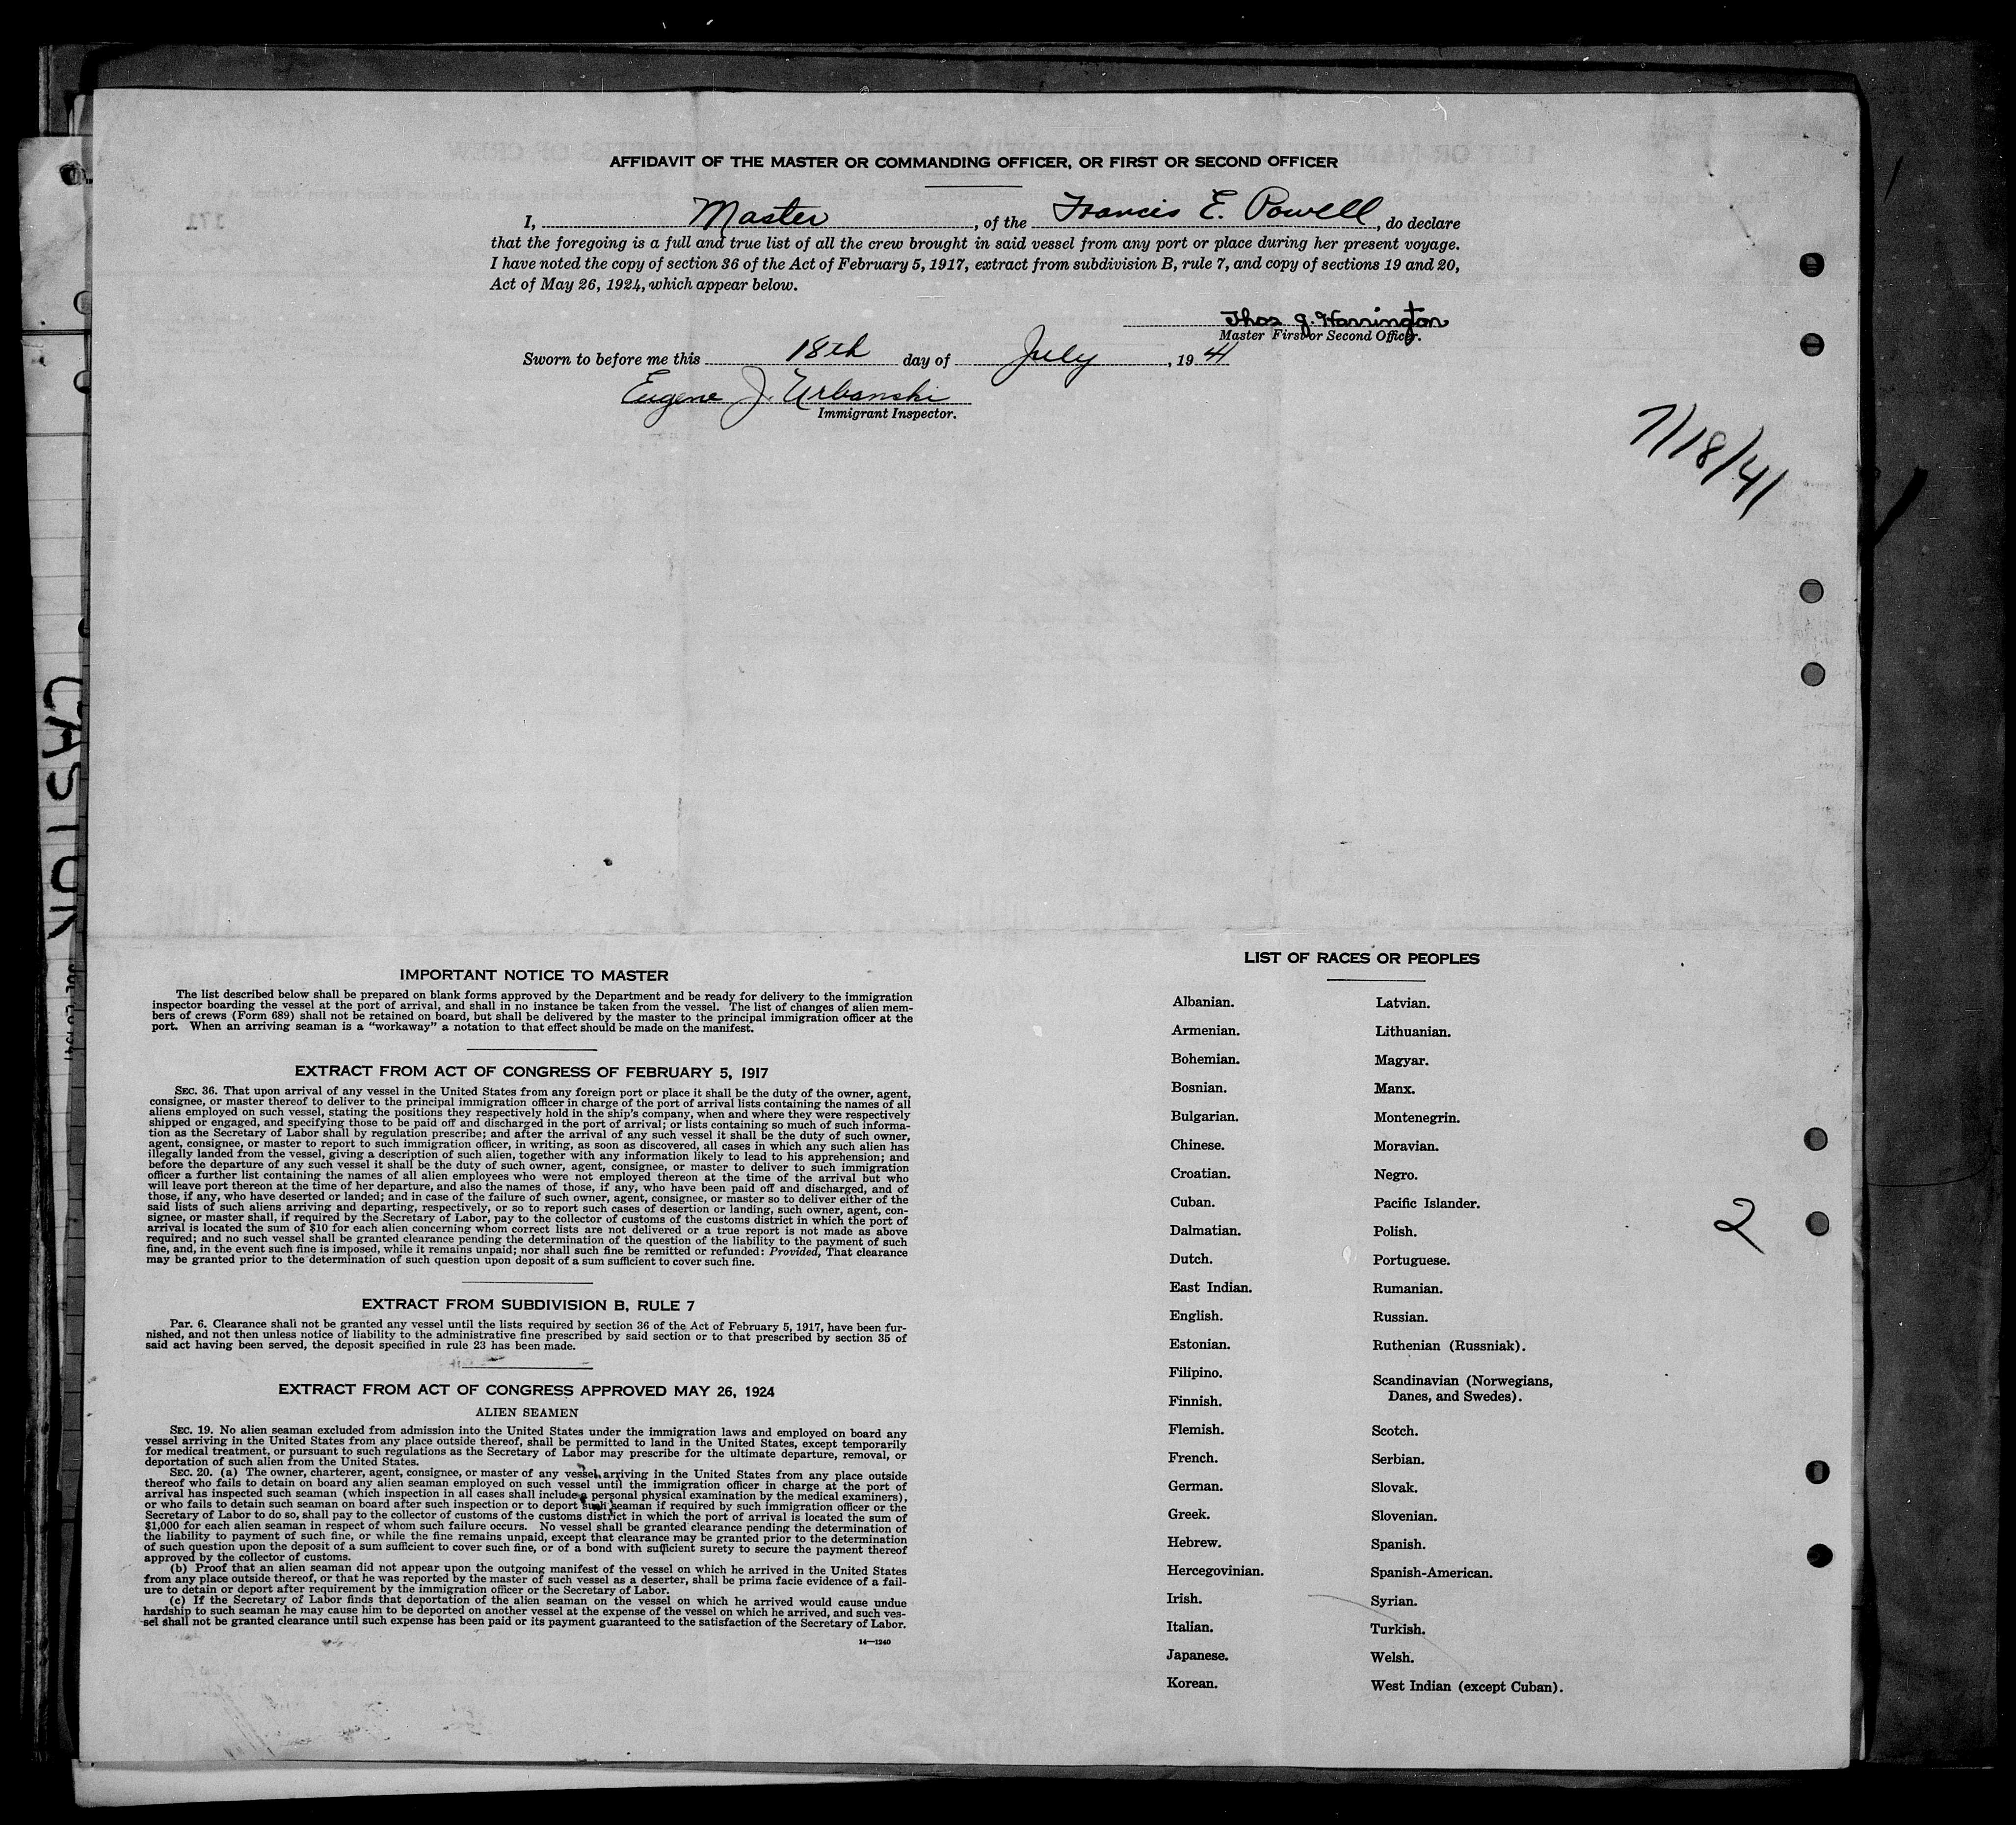 AFFIDAVIT OF THE MASTER OR COMMANDING OFFICER, OR FIRST OR SECOND OFFICER
I, Master, of the Francis E. Powell, do declare
that the foregoing is a full and true list of all the crew brought in said vessel from any port or place during her present voyage.
I have noted the copy of section 36 of the Act of February 5, 1917, extract from subdivision B, rule 7, and copy of sections 19 and 20,
Act of May 26, 1924, which appear below.
Thos J. Harrington
Master First or Second Officer.
Sworn to before me this 18th day of July, 1941
Eugene J. Urbanski
Immigrant Inspector.
7/18/41
171
CASTON
IMPORTANT NOTICE TO MASTER
The list described below shall be prepared on blank forms approved by the Department and be ready for delivery to the immigration
inspector boarding the vessel at the port of arrival, and shall in no instance be taken from the vessel. The list of changes of alien mem-
bers of crews (Form 689) shall not be retained on board, but shall be delivered by the master to the principal immigration officer at the
port. When an arriving seaman is a "workaway" a notation to that effect should be made on the manifest.
EXTRACT FROM ACT OF CONGRESS OF FEBRUARY 5, 1917
SEC. 36. That upon arrival of any vessel in the United States from any foreign port or place it shall be the duty of the owner, agent,
consignee, or master thereof to deliver to the principal immigration officer in charge of the port of arrival lists containing the names of all
aliens employed on such vessel, stating the positions they respectively hold in the ship's company, when and where they were respectively
shipped or engaged, and specifying those to be paid off and discharged in the port of arrival; or lists containing so much of such informa-
tion as the Secretary of Labor shall by regulation prescribe; and after the arrival of any such vessel it shall be the duty of such owner,
agent, consignee, or master to report to such immigration officer, in writing, as soon as discovered, all cases in which any such alien has
illegally landed from the vessel, giving a description of such alien, together with any information likely to lead to his apprehension; and
before the departure of any such vessel it shall be the duty of such owner, agent, consignee, or master to deliver to such immigration
officer a further list containing the names of all alien employees who were not employed thereon at the time of the arrival but who
will leave port thereon at the time of her departure, and also the names of those, if any, who have been paid off and discharged, and of
those, if any, who have deserted or landed; and in case of the failure of such owner, agent, consignee, or master so to deliver either of the
said lists of such aliens arriving and departing, respectively, or so to report such cases of desertion or landing, such owner, agent, con-
signee, or master shall, if required by the Secretary of Labor, pay to the collector of customs of the customs district in which the port of
arrival is located the sum of $10 for each alien concerning whom correct lists are not delivered or a true report is not made as above
required; and no such vessel shall be granted clearance pending the determination of the question of the liability to the payment of such
fine, and, in the event such fine is imposed, while it remains unpaid; nor shall such fine be remitted or refunded: Provided, That clearance
may be granted prior to the determination of such question upon deposit of a sum sufficient to cover such fine.
EXTRACT FROM SUBDIVISION B, RULE 7
Par. 6. Clearance shall not be granted any vessel until the lists required by section 36 of the Act of February 5, 1917, have been fur-
nished, and not then unless notice of liability to the administrative fine prescribed by said section or to that prescribed by section 35 of
said act having been served, the deposit specified in rule 23 has been made.
EXTRACT FROM ACT OF CONGRESS APPROVED MAY 26, 1924
ALIEN SEAMEN
SEC. 19. No alien seaman excluded from admission into the United States under the immigration laws and employed on board any
vessel arriving in the United States from any place outside thereof, shall be permitted to land in the United States, except temporarily
for medical treatment, or pursuant to such regulations as the Secretary of Labor may prescribe for the ultimate departure, removal, or
deportation of such alien from the United States.
SEC. 20. (a) The owner, charterer, agent, consignee, or master of any vessel arriving in the United States from any place outside
thereof who fails to detain on board any alien seaman employed on such vessel until the immigration officer in charge at the port of
arrival has inspected such seaman (which inspection in all cases shall include a personal physical examination by the medical examiners),
or who fails to detain such seaman on board after such inspection or to deport such seaman if required by such immigration officer or the
Secretary of Labor to do so, shall pay to the collector of customs of the customs district in which the port of arrival is located the sum of
$1,000 for each alien seaman in respect of whom such failure occurs. No vessel shall be granted clearance pending the determination of
the liability to payment of such fine, or while the fine remains unpaid, except that clearance may be granted prior to the determination
of such question upon the deposit of a sum sufficient to cover such fine, or of a bond with sufficient surety to secure the payment thereof
approved by the collector of customs.
(b) Proof that an alien seaman did not appear upon the outgoing manifest of the vessel on which he arrived in the United States
from any place outside thereof, or that he was reported by the master of such vessel as a deserter, shall be prima facie evidence of a fail-
ure to detain or deport after requirement by the immigration officer or the Secretary of Labor.
(c) If the Secretary of Labor finds that deportation of the alien seaman on the vessel on which he arrived would cause undue
hardship to such seaman he may cause him to be deported on another vessel at the expense of the vessel on which he arrived, and such ves-
sel shall not be granted clearance until such expense has been paid or its payment guaranteed to the satisfaction of the Secretary of Labor.
14—1240
LIST OF RACES OR PEOPLES
Albanian.
Armenian.
Bohemian.
Bosnian.
Bulgarian.
Chinese.
Croatian.
Cuban.
Dalmatian.
Dutch.
East Indian.
English.
Estonian.
Filipino.
Finnish.
Flemish.
French.
German.
Greek.
Hebrew.
Hercegovinian.
Irish.
Italian.
Japanese.
Korean.
Latvian.
Lithuanian.
Magyar.
Manx.
Montenegrin.
Moravian.
Negro.
Pacific Islander.
Polish.
Portuguese.
Rumanian.
Russian.
Ruthenian (Russniak).
Scandinavian (Norwegians,
Danes, and Swedes).
Scotch.
Serbian.
Slovak.
Slovenian.
Spanish.
Spanish-American.
Syrian.
Turkish.
Welsh.
West Indian (except Cuban).
2